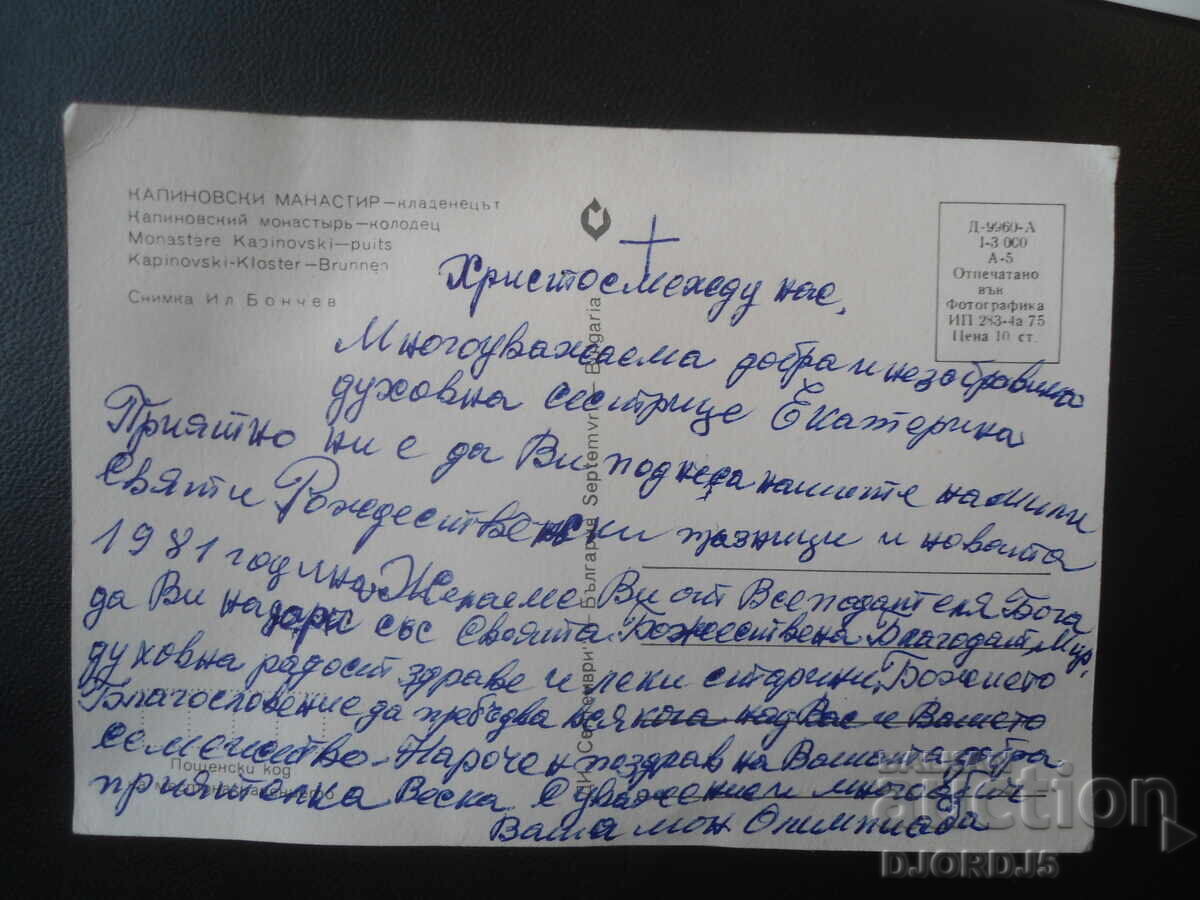 КАПИНОВСКИ МАНАСТИР—кладенецът
Капиновский монастырь—колодец
Monastere Kapinovski—puits
Kapinovski-Kloster—Brunnen
Снимка Ил Бончев
Д-9960-А
1-3 000
А-5
Отпечатано
във
Фотографика
ИП 283-4а 75
Цена 10 ст.
Христос между нас,
Многоуважаема добра и незабравима
духовна сестрице Екатерина
Приятно ни е да Ви поднеса нашите намили
Святи Рождественски празници и новата
1981 година. Желаеме Ви от Всеподателя Бога
да Ви надари със Своята Божествена Благодат, Мир,
духовна радост здраве и леки старини, Божието
Благословение да пребъдва всякога над Вас и Вашето
семейство. Нарочен поздрав на Вашата добра
приятелка Веска. С уважение и многобуйни
Ваша мон Олимпиада
България Septemvri — Bulgaria
Пощенски код
auction
DJORDJ5